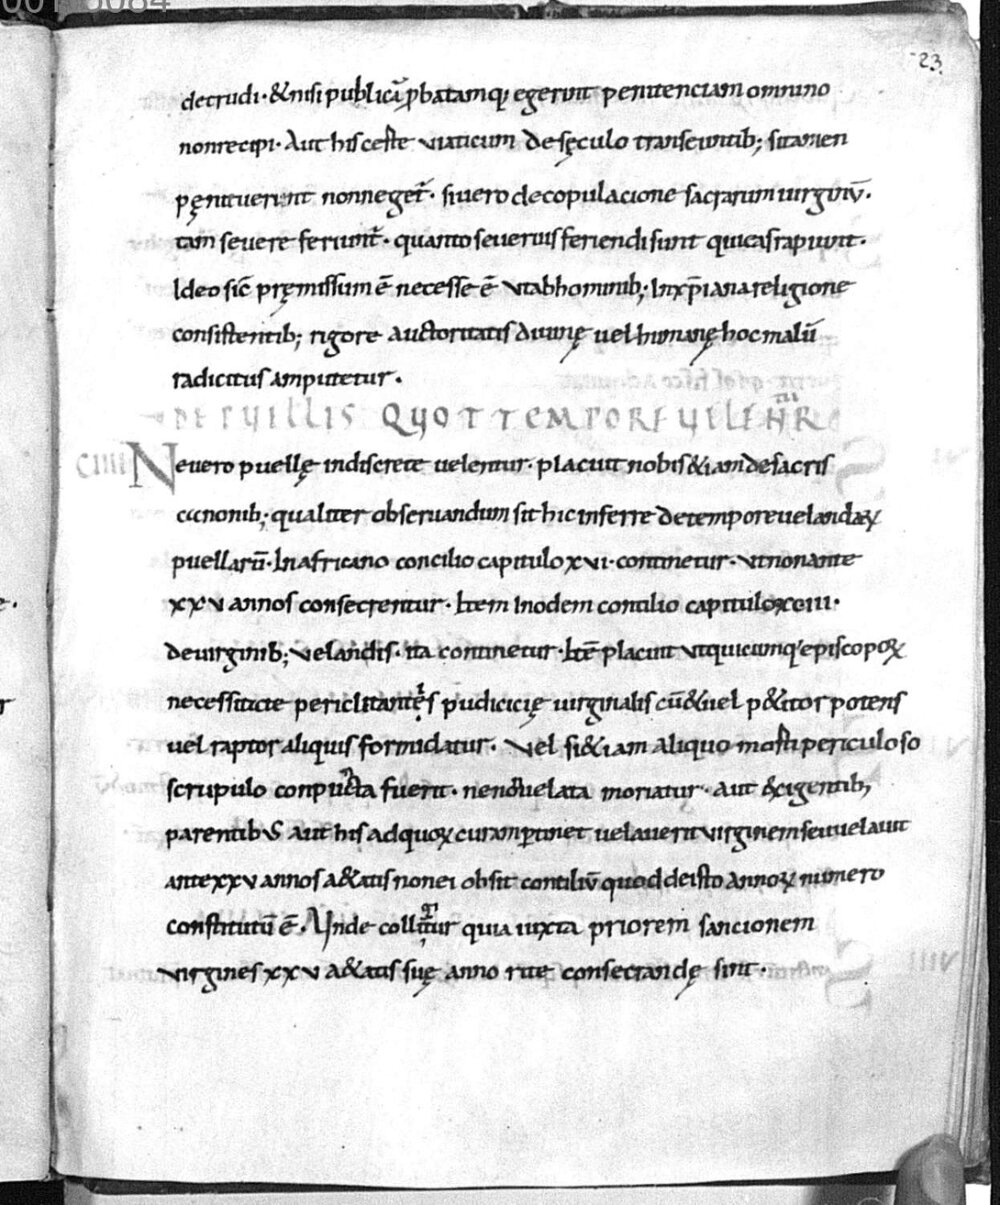 23
detrudi · & nisi publicā p̱batamq; egerint penitenciam omnino
non recipi · Aut his certe viaticum de sęculo transeuntib; si tamen
pęnituerint non neget̄ · si uero de copulacione sacrarum uirginū ·
tam seuere feriunt̄ · quanto seuerius feriendi sunt qui eas rapiunt ·
Ideo sic̄ pręmissum ē necesse ē vt ab hominib; In xp̄iana religione
consistentib; rigore auctoritatis diuinę uel humanę hoc malū
radicitus amputetur ·
DE PUELLIS QUOT TEMPORE UELENR̄
CIIII Ne uero puellę indiscrete uelentur · placuit nobis & iam de sacris
canonib; qualiter obseruandum sit hic inferre de tempore uelandaꝝ
puellarū · In africano concilio capitulo xvi · continetur · vt non ante
xxv annos consecrentur · Item In odem concilio capitulo xciii ·
de uirginib; velandis · ita continetur · Itē placuit vt quicumq; episcopoꝝ
necessitate periclitantęs pudicicię uirginalis cū & uel p&itor potens
uel raptor aliquis formidatur · vel si & iam aliquo mortis periculoso
scrupulo conpuncta fuerit · ne non uelata moriatur · aut exigentib;
parentibus aut his ad quoꝝ curam p̱tinet uelauerit virginem seu uelauit
ante xxv annos a&atis non ei obsit conciliū quod de isto annoꝝ numero
constitutū ē · Unde colligitur quia iuxta priorem sancionem
virgines xxv a&atis suę anno rite consecrandę sint ·